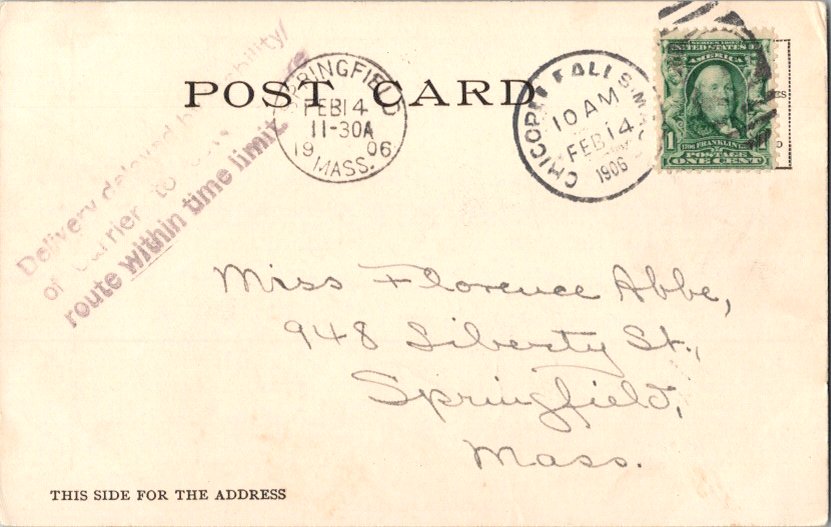 POST CARD
Delivery delayed by inability
of carrier to
route within time limit
SPRINGFIELD
FEB 14
11-30A
19 06
MASS.
CHICOPEE FALLS, MASS.
10 AM
FEB 14
1906
SERIES 1902
UNITED STATES OF
AMERICA
1 FRANKLIN 1
POSTAGE
ONE CENT
Miss Florence Abbe,
948 Liberty St.,
Springfield,
Mass.
THIS SIDE FOR THE ADDRESS